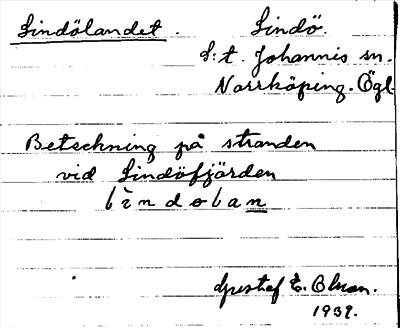 Lindölandet. Lindö.
S:t. Johannis sn.
Norrköping. Ögl.
Beteckning på stranden
vid Lindöfjärden
Gustaf E. Olsson.
1932.